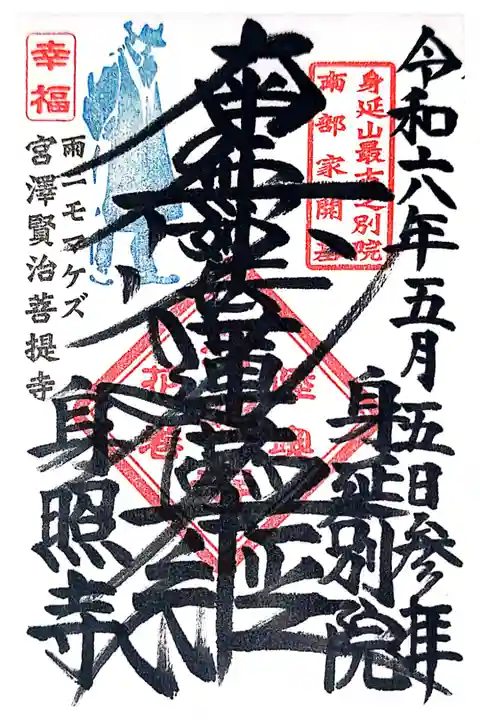 令和六年五月五日参拝
身延山最古之別院
南部家開基
身延別院
南無妙法蓮華経
雨ニモマケズ
宮澤賢治菩提寺
身照寺
幸福